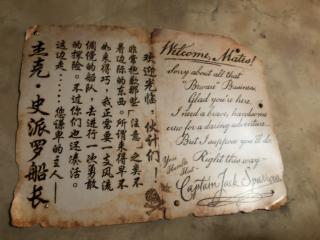 欢迎光临，伙计们！
非常抱歉那些“注意”之类不
着边际的东西。所谓来得早不
如来得巧，我正需要一支风流
倜傥的船队，去进行一次勇敢
的探险。不过你们也还凑活。
这边走……您谦卑的主人——
杰克·史派罗船长
Welcome, Mates!
Sorry about all that
"Beware" Business,
Glad you're here,
I need a brave, handsome
crew for a daring adventure.
But I suppose you'll do.
Right this way -
Your
Humble
Host -
Captain Jack Sparrow